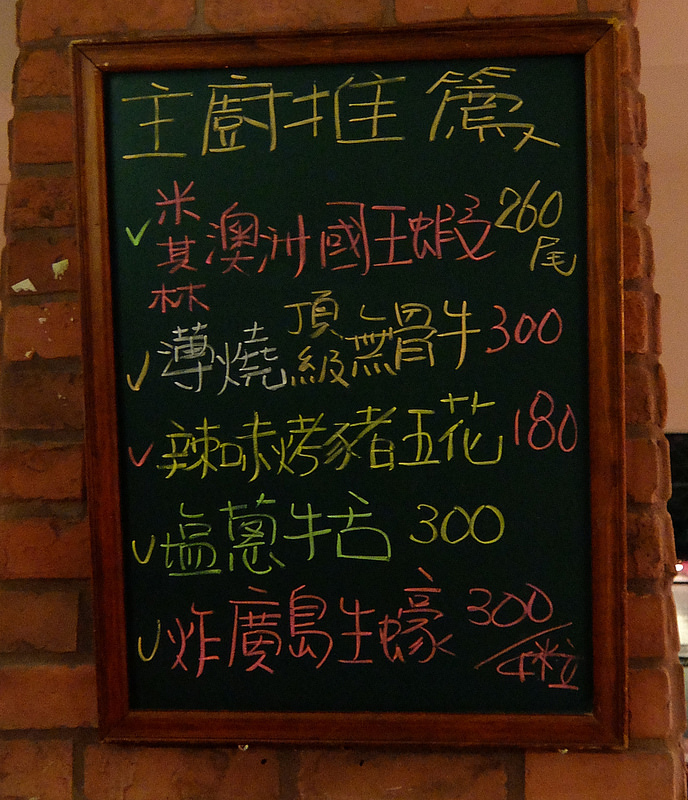 主廚推薦
米其林澳洲國王蝦 260尾
薄燒頂級無骨牛 300
辣味烤豬五花 180
塩蔥牛舌 300
炸廣島生蠔 300/4粒